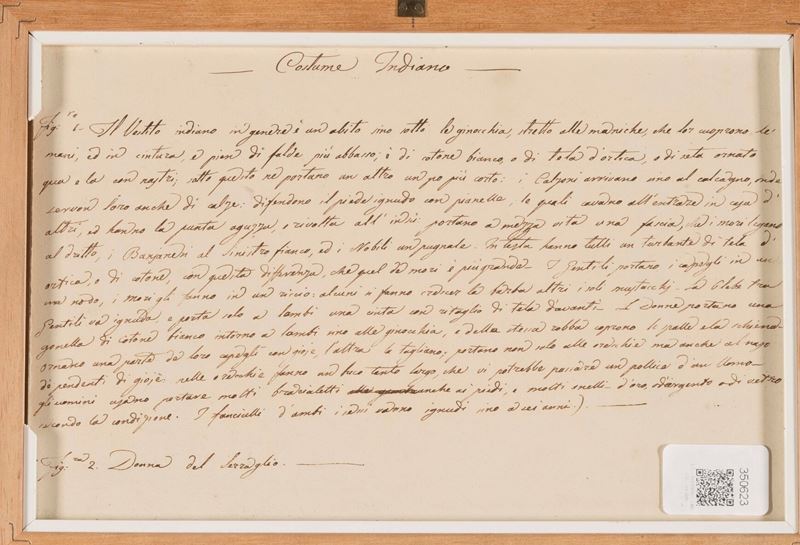 Costume Indiano
Figra 1. Il Vestito indiano in genere è un abito sino sotto le ginocchia, stretto alle maniche, che lor cuoprono le
mani, ed in cintura, e pien di falde più abbasso; è di cotone bianco, o di tela d'ortica, o di seta ornato
qua e la con nastri; sotto questo ne portano un altro un po più corto: i Calzoni arrivano sino al calcagno, onde
servon loro anche di calze: difendono il piede ignudo con pianelle, le quali cavano all'entrare in casa d'
altri, ed hanno la punta aguzza, e rivolta all' insù: portano a mezza vita una fascia, che i mori legano
al dritto, i Banjaneni al sinistro fianco, ed i Nobili un pugnale. In testa hanno tutti un Turbante di tela d'
ortica, o di cotone, con questa differenza, che quel de mori è più grande. I Gentili portano i capegli in
un nodo, i mori gli fanno in un riccio: alcuni si fanno crescer la barba altri i soli mustacchj. La Plebe tra
Gentili va ignuda, e porta solo a lombi una cinta con ritaglio di tela davanti. Le Donne portano una
gonella di Cotone bianco intorno a lombi sino alle ginocchia, e della stessa robba coprono le spalle e la schiena
ornano una parte de loro capegli con gioje, l'altra la tagliano; portano non solo alle orecchie ma anche al naso
de pendenti di gioje: nelle orecchie fanno un buco tanto largo che vi potrebbe passare un pollice d'un Uomo
gli uomini usano portare molti braccialetti anche ai piedi, e molti anelli d'oro d'argento o di vetro
secondo la condizione. I fanciulli d'ambi i sessi vanno ignudi sino a sei anni.)
Figra 2. Donna del Serraglio.
350623